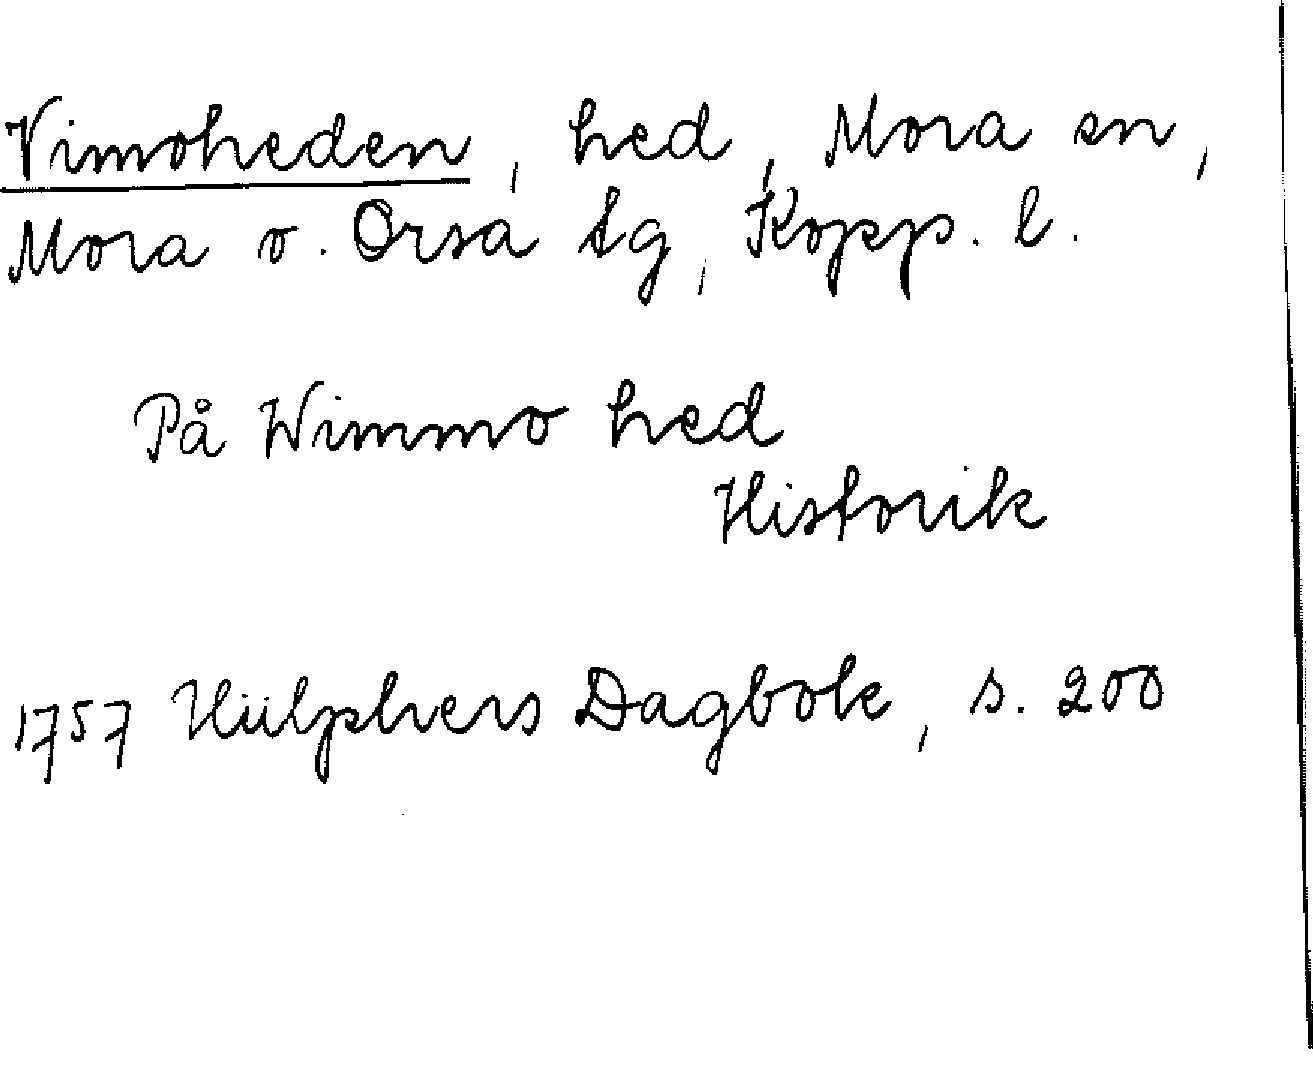 Vimoheden, hed, Mora sn,
Mora o. Orsa tg, Kopp. l.
På Wimmo hed
Historik
1757 Hülphers Dagbok, s. 200